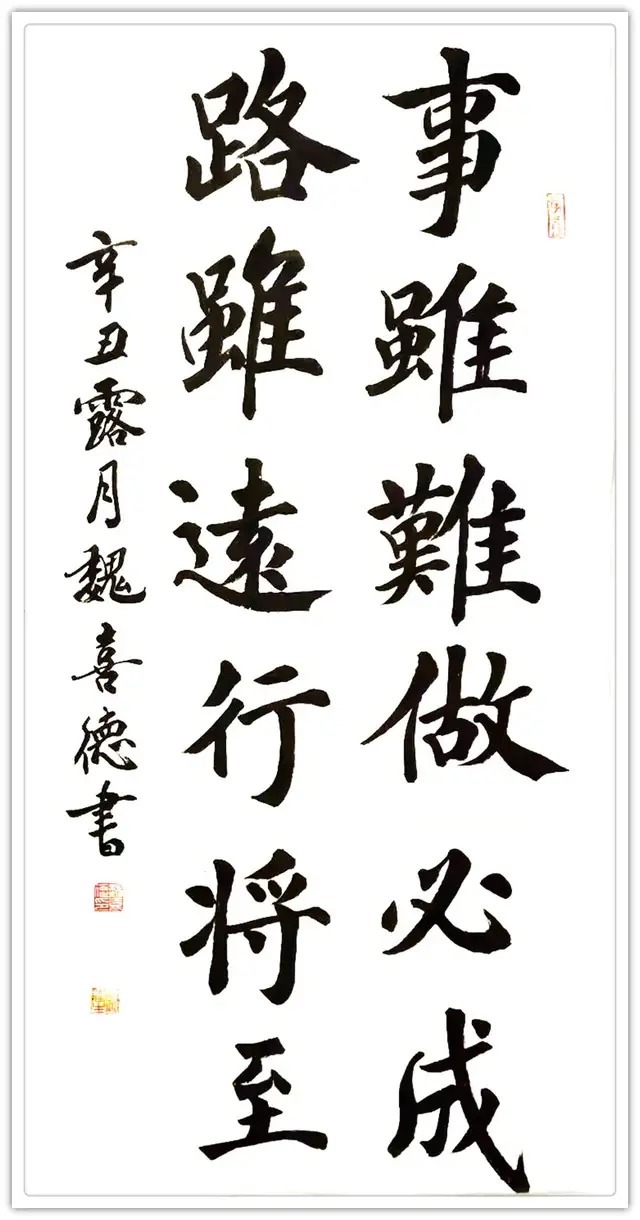 事雖難做必成
路雖遠行将至
辛丑露月魏喜德書